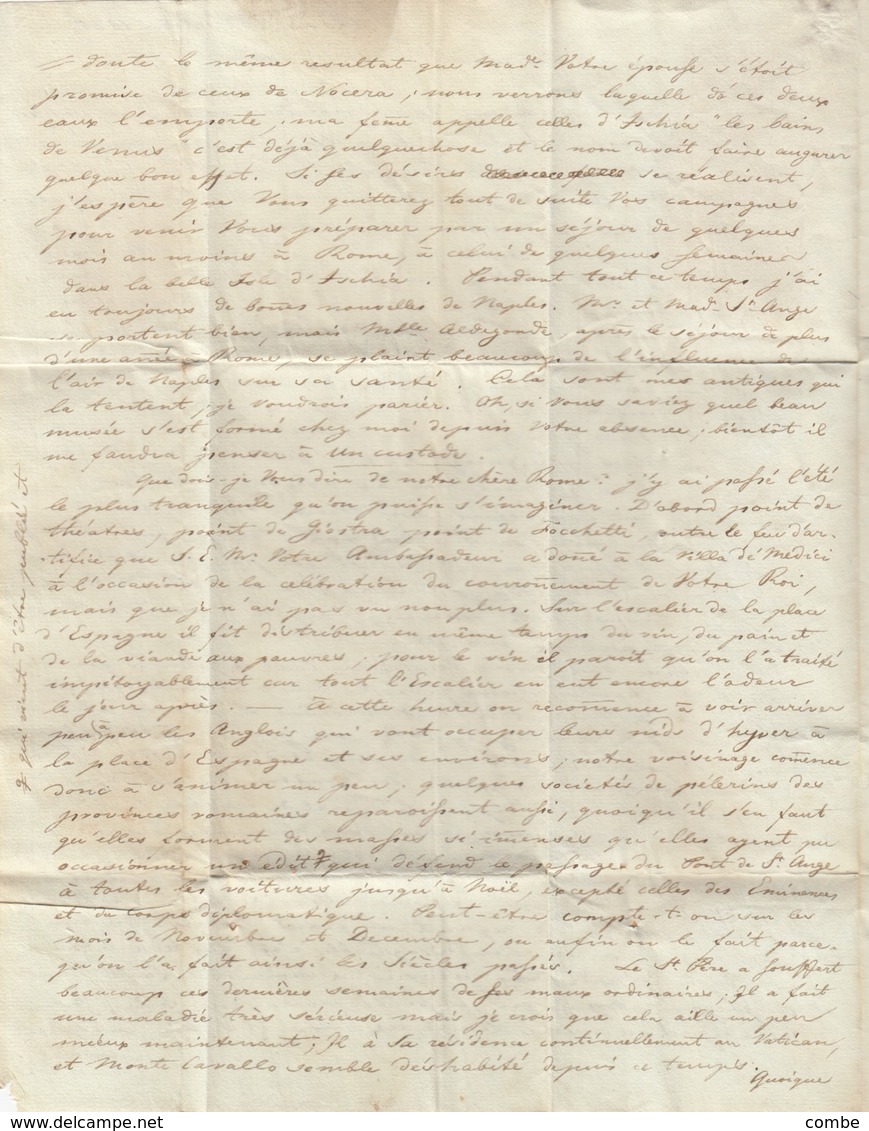 = doute le même resultat que Made. Votre épouse s'étoit
promise de ceux de Nocera, nous verrons laquelle de ces deux
eaux l'emporte, ma feme appelle celles d'Ischia "les bains
de Venus" c'est déjà quelquechose et le nom devoit faire augurer
quelque bon effet. Si ses désirs se réalisent,
j'espère que Vous quitterez tout de suite Vos campagnes
pour venir Vous préparer par un séjour de quelques
mois au moins à Rome, à celui de quelques semaines
dans la belle Isle d'Ischia. Pendant tout ce temps j'ai
eu toujours de bones nouvelles de Naples. Mr. et Made. St. Ange
se portent bien, mais Mlle Aldegonde, après le séjour de plus
d'une anée à Rome, se plaint beaucoup de l'influence de
l'air de Naples sur sa santé. Cela sont mes antiques qui
la tentent, je voudrois parier. Oh, si Vous saviez quel beau
musée s'est formé chez moi depuis Votre absence; bientôt il
me faudra penser à un custode.
Que dois-je Vous dire de notre chère Rome? j'y ai passé l'été
le plus tranquile qu'on puisse s'imaginer. D'abord point de
théatres, point de Giostra point de Focchetti, outre le feu d'ar-
-tifice que S. E. Mr. Votre Ambassadeur a doné à la Villa de Medici
à l'occasion de la célébration du couronement de Votre Roi,
mais que je n'ai pas vu non plus. Sur l'escalier de la place
d'Espagne il fit distribuer en même temps du vin, du pain et
de la viande aux pauvres; pour le vin il paroit qu'on l'a traité
impitoyablement car tout l'Escalier en eut encore l'odeur
le jour après. — À cette heure on recomence à voir arriver
peu à peu les Anglois qui vont occuper leurs nids d'hyver à
la place d'Espagne et ses environs, notre voisinage comence
donc à s'animer un peu; quelques sociétés de pélerins des
provinces romaines reparoissent aussi, quoiqu'il s'en faut
qu'elles forment des masses si imenses qu'elles ayent pu
occasionner un edit qui défend le passage du Pont de St. Ange
à toutes les voitures jusqu'à Noël, excepté celles des Eminences
et du Corps diplomatique. Peut-être compte-t-on sur les
mois de Novembre et Decembre, ou enfin on le fait parce-
qu'on l'a fait ainsi les siècles passés. Le St. Père a souffert
beaucoup ces dernières semaines de ses maux ordinaires; Il a fait
une maladie très sérieuse mais je crois que cela aille un peu
mieux maintenant; Il a Sa résidence continuellement au Vatican,
et Monte Cavallo semble déshabité depuis ce temps.
Quoique
qui vient d'être publié et
combe